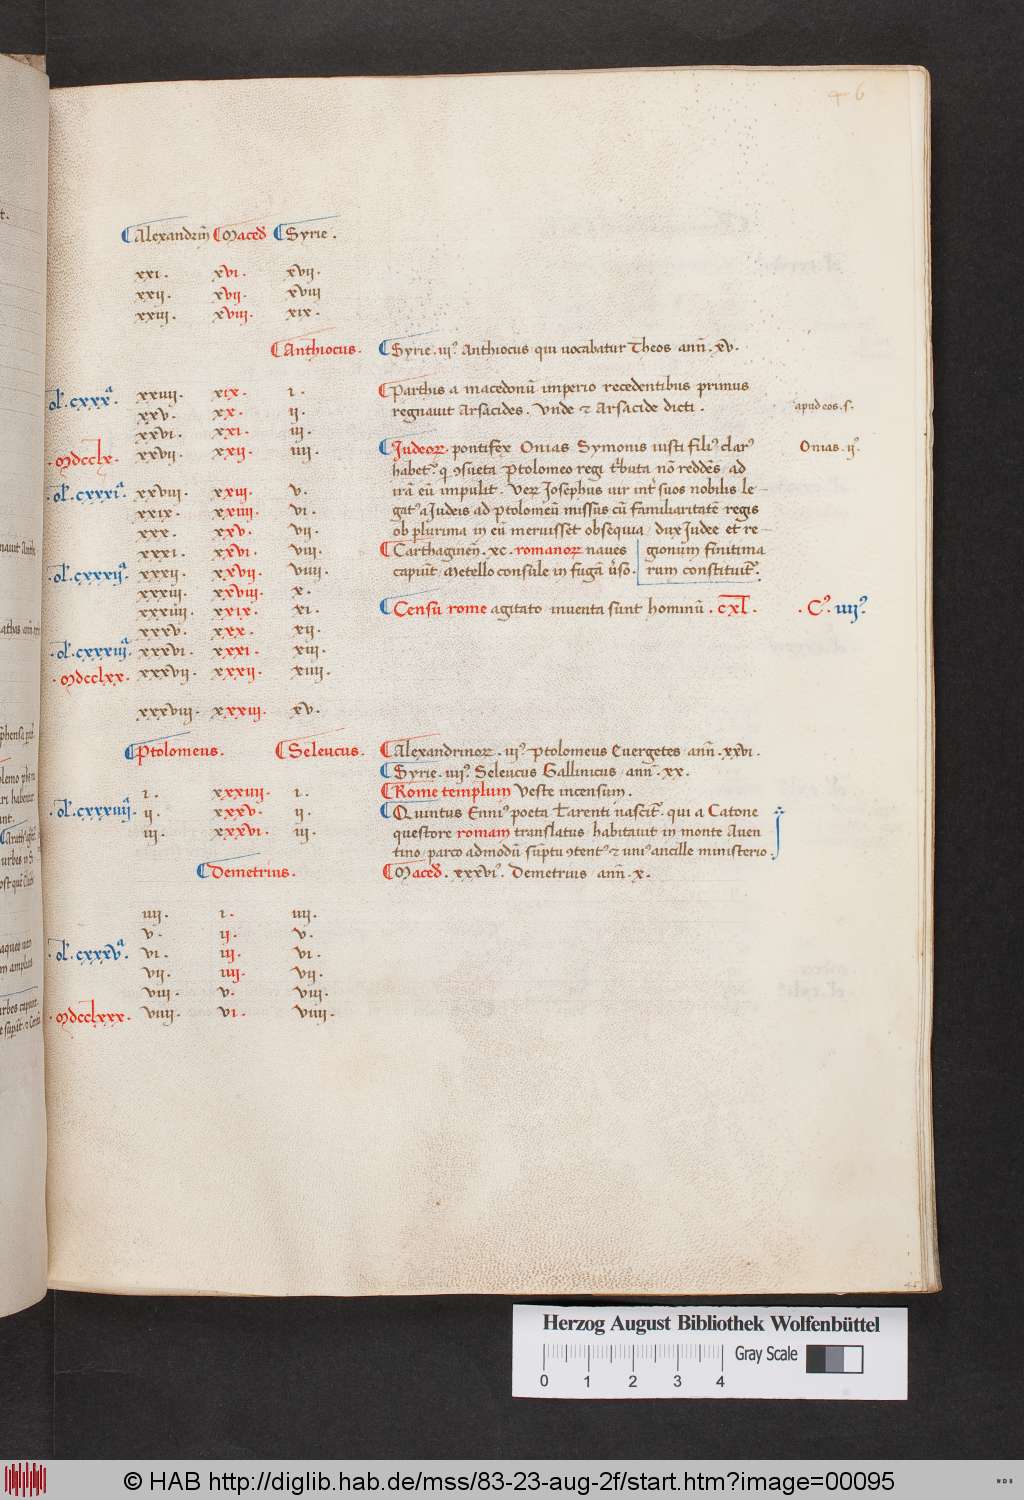 46
¶Alexandrin̄ ¶Maced̄ ¶Syrie.
xxi. xvi. xvii.
xxii. xvii. xviii
xxiii. xviii. xix.
¶Anthiocus. ¶Syrie.iii.ꝰ Anthiocus qui uocabatur Theos ann̄.xv.
¶Parthis a macedonū imperio recedentibus primus
ol'.cxxxᵃ. xxiiii. xix. i.
regnauit Arsacides. Vnde ⁊ Arsacide dicti. apud eos.s.
xxv. xx. ii.
xxvi. xxi. iii.
¶Judeoꝝ. pontifex Onias Symonis iusti filiꝰ clarꝰ Onias.ii.ꝰ
.mdcclx. xxvii. xxii. iiii.
habet.ꝰ q̄ ꝯsueta Ptolomeo regi tͥbuta nō reddēs ad
.ol'.cxxxiᵃ. xxviii. xxiii. v.
irā eū impulit. Veꝝ Josephus uir intͬ suos nobilis le-
xxix. xxiiii. vi.
gatꝰ a Judeis ad ptolomeū missus cū familiaritatē regis
xxx. xxv. vii.
ob plurima in eū meruisset obsequia dux Judee et re-
xxxi. xxvi. viii.
¶Carthaginen̄.xc.romanoꝝ naues | gionum finitima
.ol'.cxxxiiᵃ. xxxii. xxvii. viiii.
capiūt Metello consule in fugā ùso. | rum constituit.ꝰ
xxxiii. xxviii. x.
xxxiiii. xxix. xi.
¶Censū rome agitato inuenta sunt hominū.cxl. .Cꝰ.iiii.ꝰ
xxxv. xxx. xii.
.ol'.cxxxiiiᵃ. xxxvi. xxxi. xiii.
.mdcclxx. xxxvii. xxxii. xiiii.
xxxviii. xxxiii. xv.
¶Ptolomeus. ¶Seleucus. ¶Alexandrinoꝝ.iii.ꝰ ptolomeus Euergetes ann̄.xxvi.
¶Syrie.iiii.ꝰ Seleucus Gallinicus ann̄.xx.
¶Rome templum Veste incensum.
i. xxxiiii. i.
.ol'.cxxxiiiiᵃ. ii. xxxv. ii.
¶Quintus Enniꝰ poeta Tarenti nascit.ꝰ qui a Catone
iii. xxxvi. iii.
questore romam translatus habitauit in monte Auen
tino parco admodū sūptu ꝯtentꝰ ⁊ uniꝰ ancille ministerio.
¶Demetrius. ¶Maced̄.xxxvi.ꝰ Demetrius ann̄.x.
iiii. i. iiii.
v. ii. v.
.ol'.cxxxvᵃ. vi. iii. vi.
vii. iiii. vii.
viii. v. viii.
.mdcclxxx. viiii. vi. viiii.
Herzog August Bibliothek Wolfenbüttel
Gray Scale
0 1 2 3 4
© HAB http://diglib.hab.de/mss/83-23-aug-2f/start.htm?image=00095